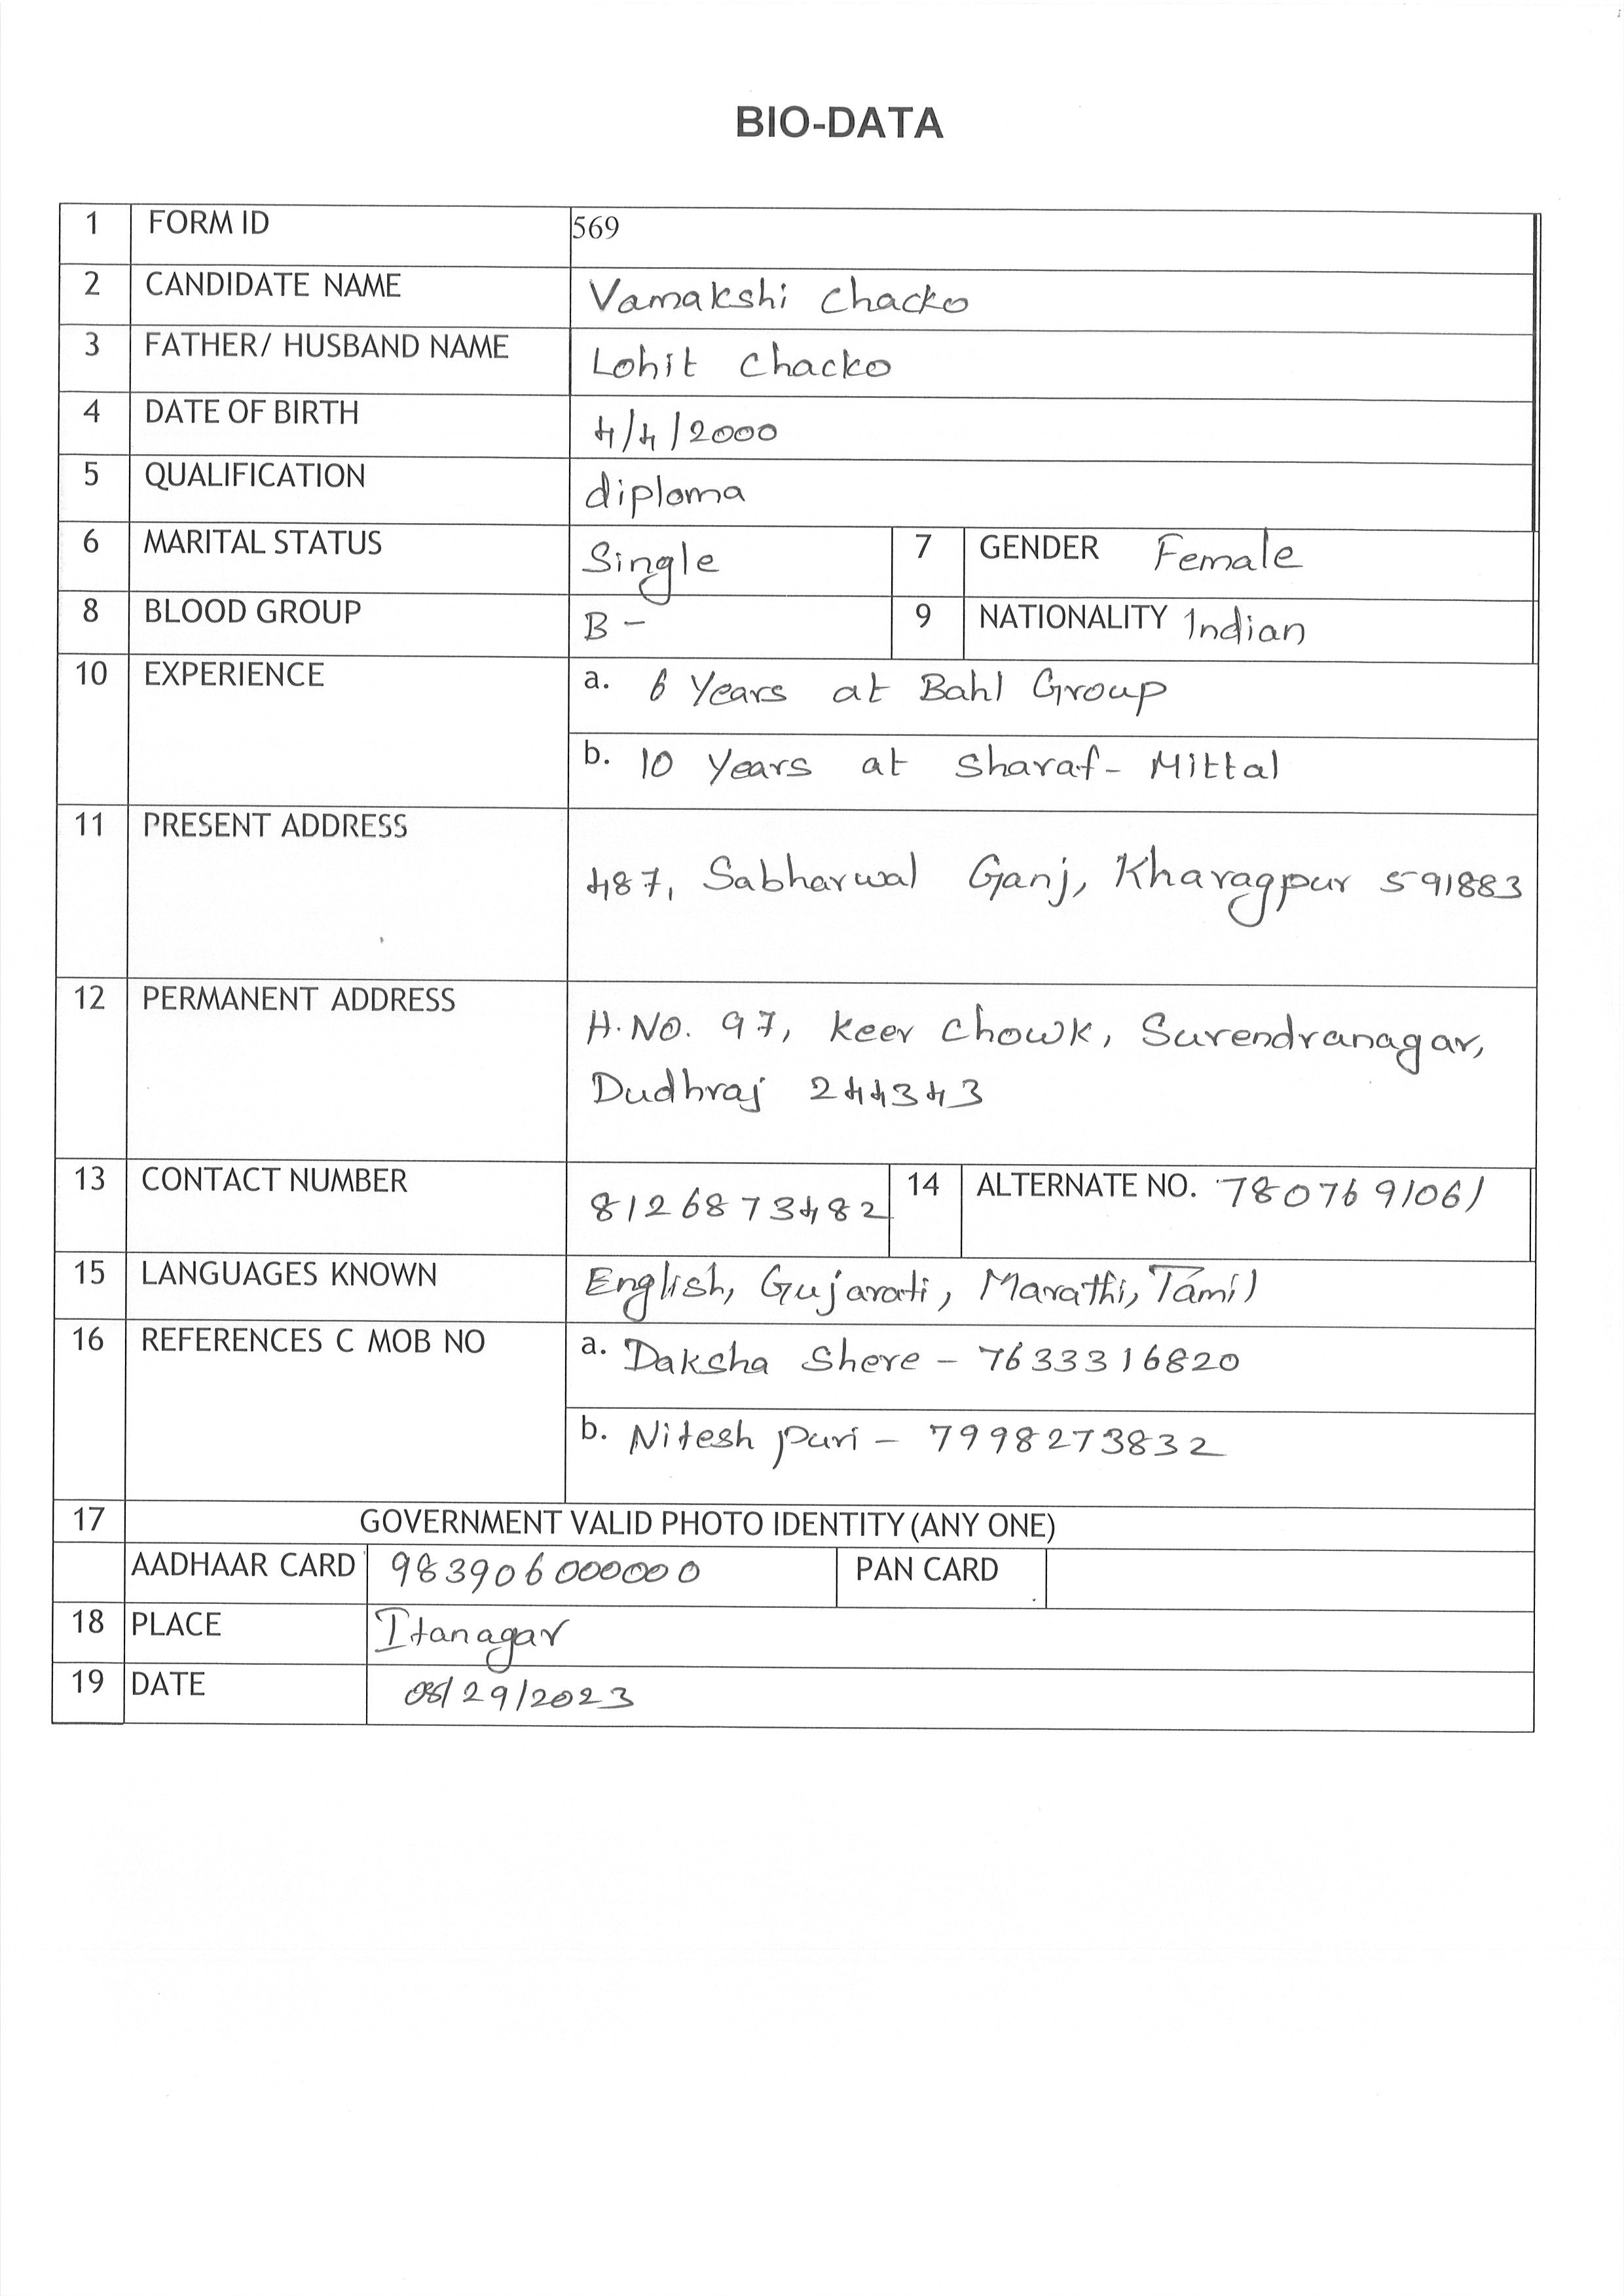 BIO-DATA
1 FORM ID 569
2 CANDIDATE NAME Vamakshi Chacko
3 FATHER/ HUSBAND NAME Lohit Chacko
4 DATE OF BIRTH 4/4/2000
5 QUALIFICATION diploma
6 MARITAL STATUS Single 7 GENDER Female
8 BLOOD GROUP B- 9 NATIONALITY Indian
10 EXPERIENCE a. 6 Years at Bahl Group
b. 10 Years at Sharaf-Mittal
11 PRESENT ADDRESS 487, Sabharwal Ganj, Kharagpur 591883
12 PERMANENT ADDRESS H.No. 97, Keer Chowk, Surendranagar,
Dudhraj 244343
13 CONTACT NUMBER 8126873482 14 ALTERNATE NO. 7807691061
15 LANGUAGES KNOWN English, Gujarati, Marathi, Tamil
16 REFERENCES C MOB NO a. Daksha Shere - 7633316820
b. Nitesh Puri - 7998273832
17 GOVERNMENT VALID PHOTO IDENTITY (ANY ONE)
AADHAAR CARD 983906000000 PAN CARD
18 PLACE Itanagar
19 DATE 08/29/2023